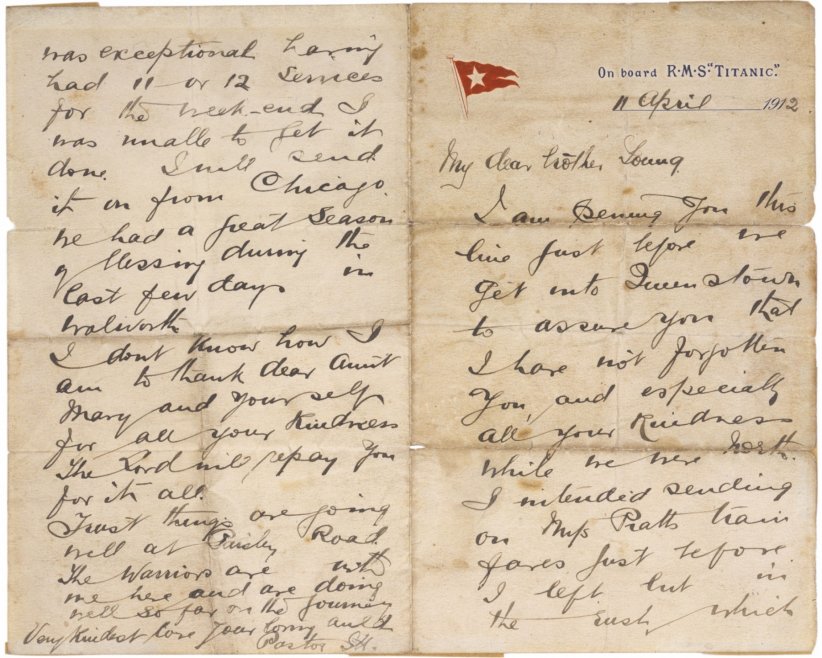 On board R·M·S. "TITANIC."
11 April 1912
My dear brother Young.
I am penning you this
line just before we
get into Queenstown
to assure you that
I have not forgotten
you, and especially
all your kindness
while we were North.
I intended sending
on Mrs Pratts train
fares just before
I left but in
the rush, which
was exceptional having
had 11 or 12 Services
for the week-end I
was unable to get it
done. I will send
it on from Chicago.
We had a great Season
of blessing during the
last few days in
Walworth
I dont know how I
am to thank dear Aunt
Mary and yourself
for all your kindness
The Lord will repay you
for it all.
Trust things are going
well at Paisley Road
The Warriors are with
me here and are doing
well so far on the journey
Very kindest love your loving auld
Pastor JH.